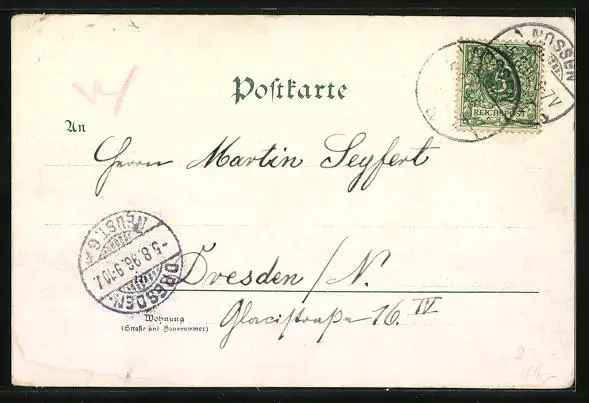 Postkarte
NOSSEN
5
REICHSPOST
An
Herrn Martin Seyfert
DRESDEN-
NEUST.
-5.8.96.9-10.V.
Dresden/N.
Wohnung
(Straße und Hausnummer)
Glacisstraße 16. IV